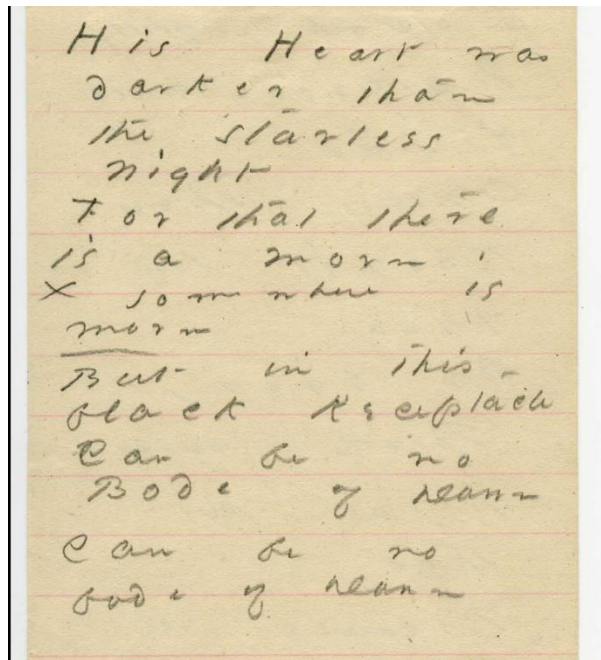 His Heart was
darker than
the starless
night
For that there
is a morn
X somewhere is
morn
But in this
black Receptacle
Can be no
Bode of Dawn
Can be no
bode of Dawn